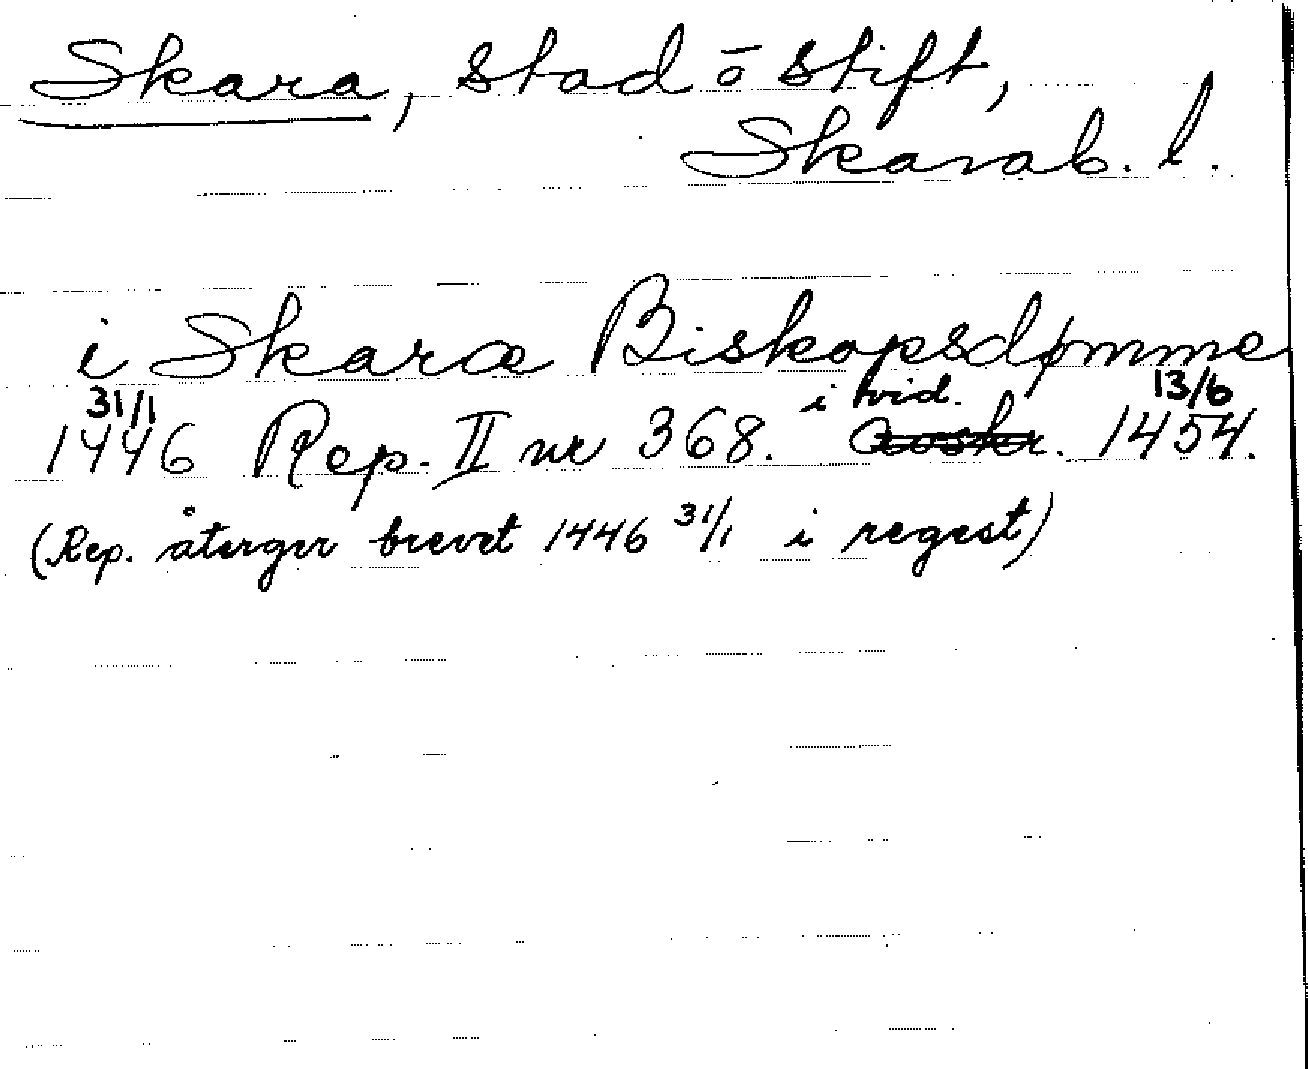 Skara, stad o stift,
Skarab. l.
i Skaræ Biskopsdømme
1446 31/1 Rep. II nr 368. i vid. Avskr. 1454 13/6.
(Rep. återger brevet 1446 31/1 i regest)